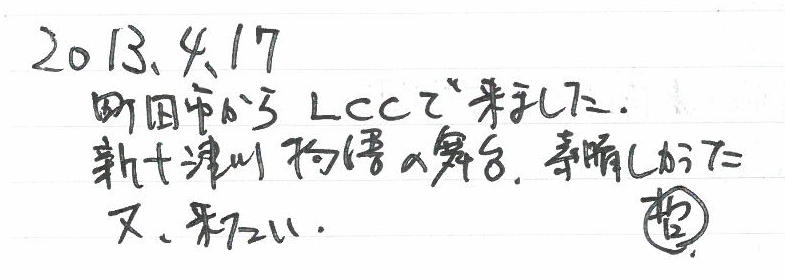 2013.4.17
町田市から LCCで来ました.
新十津川物語の舞台. 素晴しかった
又、来たい.
哲